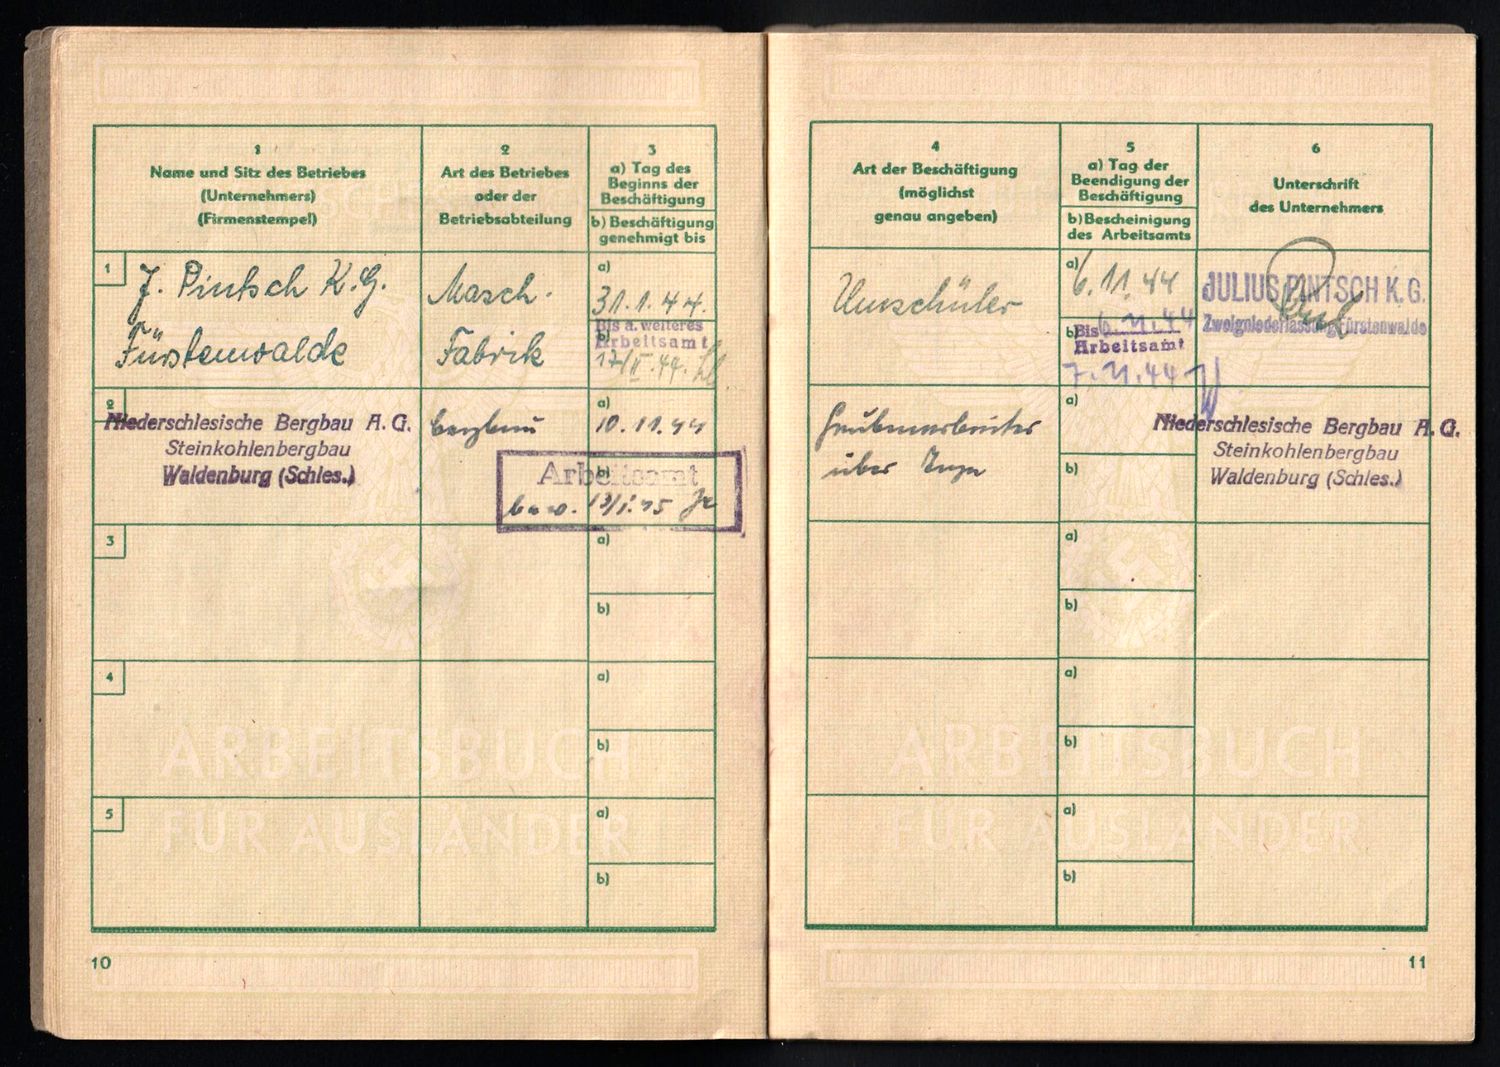 1
Name und Sitz des Betriebes
(Unternehmers)
(Firmenstempel)
2
Art des Betriebes
oder der
Betriebsabteilung
3
a) Tag des
Beginns der
Beschäftigung
b) Beschäftigung
genehmigt bis
1
J. Pintsch K.G.
Fürstenwalde
Masch.
Fabrik
a)
31.1.44.
Bis a. weiteres
b)
Arbeitsamt
17/II.44.
2
Niederschlesische Bergbau A.G.
Steinkohlenbergbau
Waldenburg (Schles.)
bergbau
a)
10.11.44
b)
Arbeitsamt
b. a. w. 13/1.45
3
a)
b)
4
a)
b)
5
a)
b)
ARBEITSBUCH
FÜR AUSLÄNDER
10
4
Art der Beschäftigung
(möglichst
genau angeben)
5
a) Tag der
Beendigung der
Beschäftigung
b) Bescheinigung
des Arbeitsamts
6
Unterschrift
des Unternehmers
Umschüler
a)
6.11.44
b)
Bis 6.11.44
Arbeitsamt
7.11.44
JULIUS PINTSCH K.G.
Zweigniederlassung Fürstenwalde
Grubenarbeiter
über Tage
a)
b)
Niederschlesische Bergbau A.G.
Steinkohlenbergbau
Waldenburg (Schles.)
a)
b)
a)
b)
a)
b)
ARBEITSBUCH
FÜR AUSLÄNDER
11